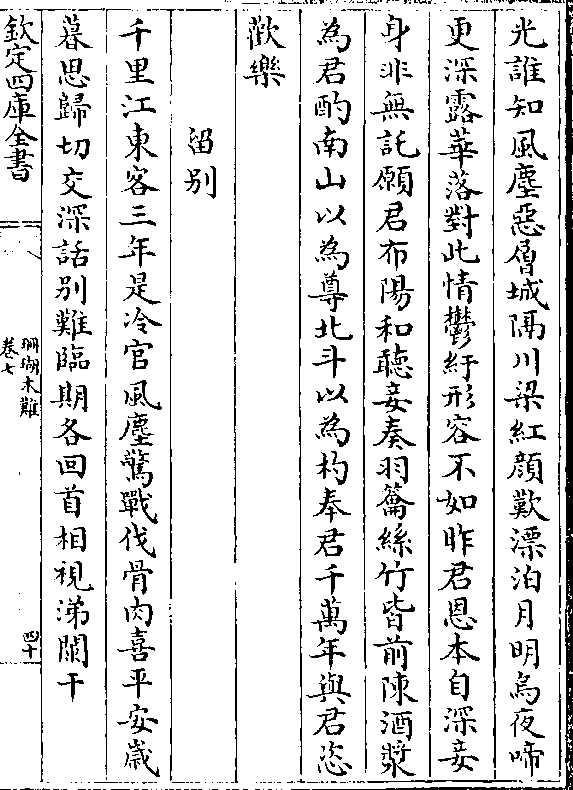 光誰知風塵惡層城隔川梁紅顏歎漂泊月明烏夜啼
更深露華落對此情鬱紆形容不如昨君恩本自深妾
身非無託願君布陽和聽妾奏羽籥絲竹皆前陳酒漿
為君酌南山以為尊北斗以為杓奉君千萬年與君恣
歡樂
留别
千里江東客三年是冷官風塵驚戰伐骨肉喜平安歲
暮思歸切交深話别難臨期各回首相視涕闌干
欽定四庫全書
珊瑚木難
卷七
四十